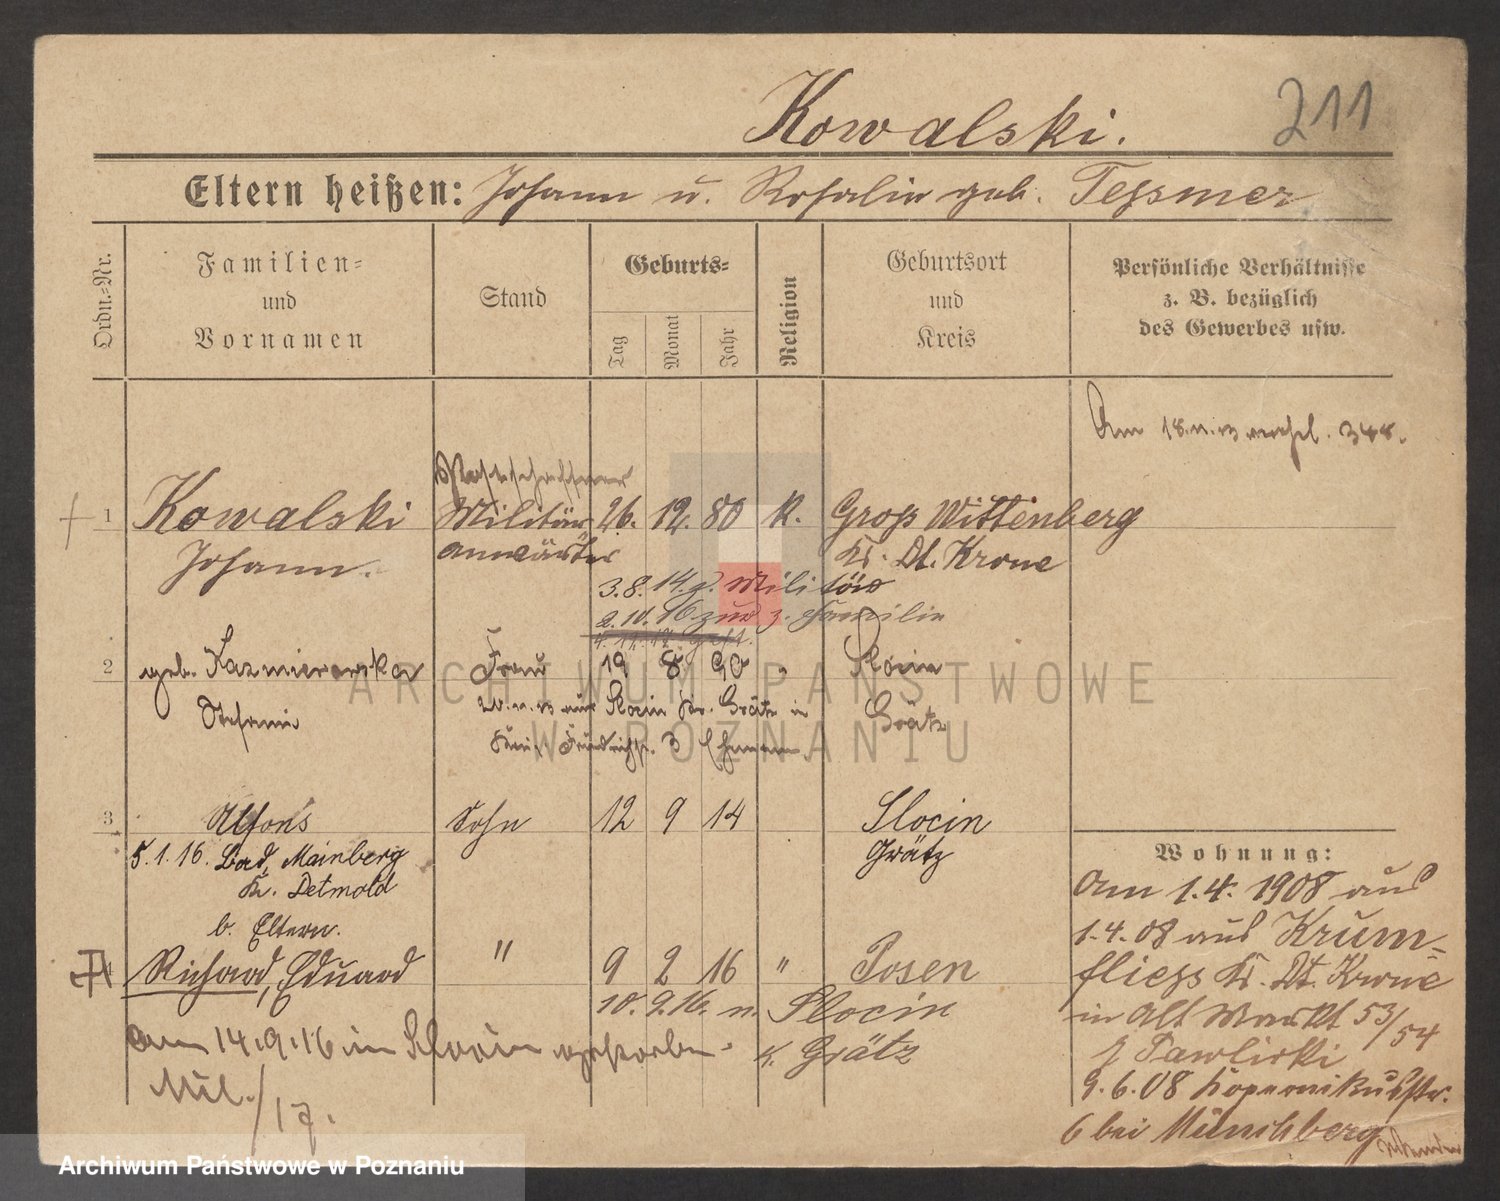 Kowalski.
211
Eltern heißen: Johann u. Rosalie geb. Tessmer
Ordn.-Nr.
Familien-
und
Vornamen
Stand
Geburts-
Tag
Monat
Jahr
Religion
Geburtsort
und
Kreis
Persönliche Verhältnisse
z. B. bezüglich
des Gewerbes usw.
Am 18. 348.
1 Kowalski Militär 26. 12. 80 K. Gross Wittenberg
Johann. anwärter Kr. Dt. Krone
3.8.14. z. Militär
2.10.16 zur z. Familie
2 geb. Kazmierowska Frau 19 8 90 " Slocin
Stefanie Grätz
aus Slocin Kr. Grätz in
3 Ehemann
3 Alfons Sohn 12 9 14 Slocin
Grätz
5.1.16. Bad, Mainberg
Kr. Detmold
b. Eltern.
4 Richard, Eduard " 9 2 16 " Posen
10. 9. 16. n. Slocin
K. Grätz
am 14.9.16 in Slocin gestorben.
Mil./17.
Wohnung:
Am 1.4. 1908 aus
1.4.08 aus Krum-
fliess Kr. Dt. Krone
in Alt Markt 53/54
b. Pawlicki
9.6.08 Kopernikusstr.
6 bei Münchberg
ARCHIWUM PAŃSTWOWE
W POZNANIU
Archiwum Państwowe w Poznaniu